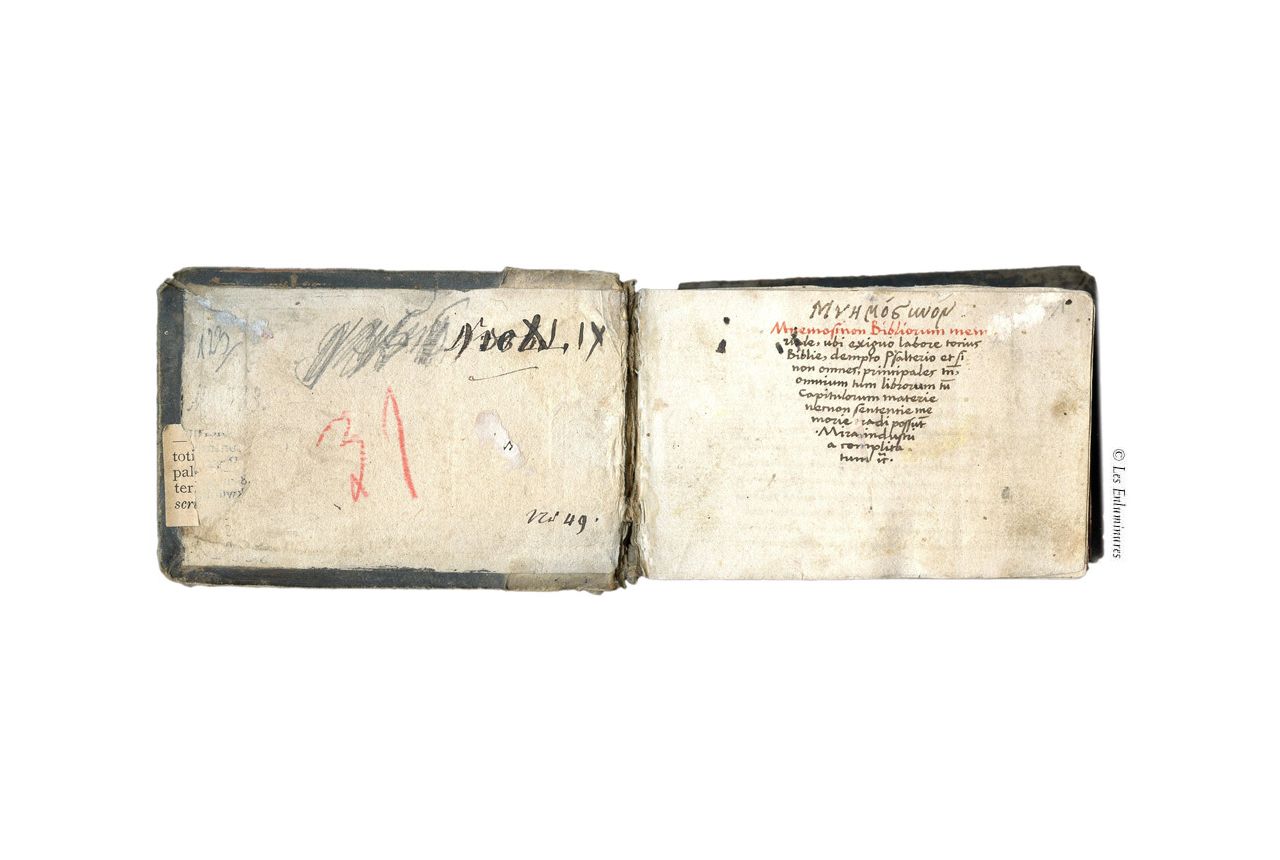 123
No XLIX
31
toti
pal
ter,
scri
No 49.
Μνημόσινον
Mnemosinon Bibliorum mem
riale, ubi exiguo labore totius
Biblie, dempto Psalterio et si
non omnes, principales tñ,
omnium tum librorum tũ
Capitulorum materie
necnon sententie me
morie tradi possũt
.Mira industri
a complica
tum
© Les Enluminures